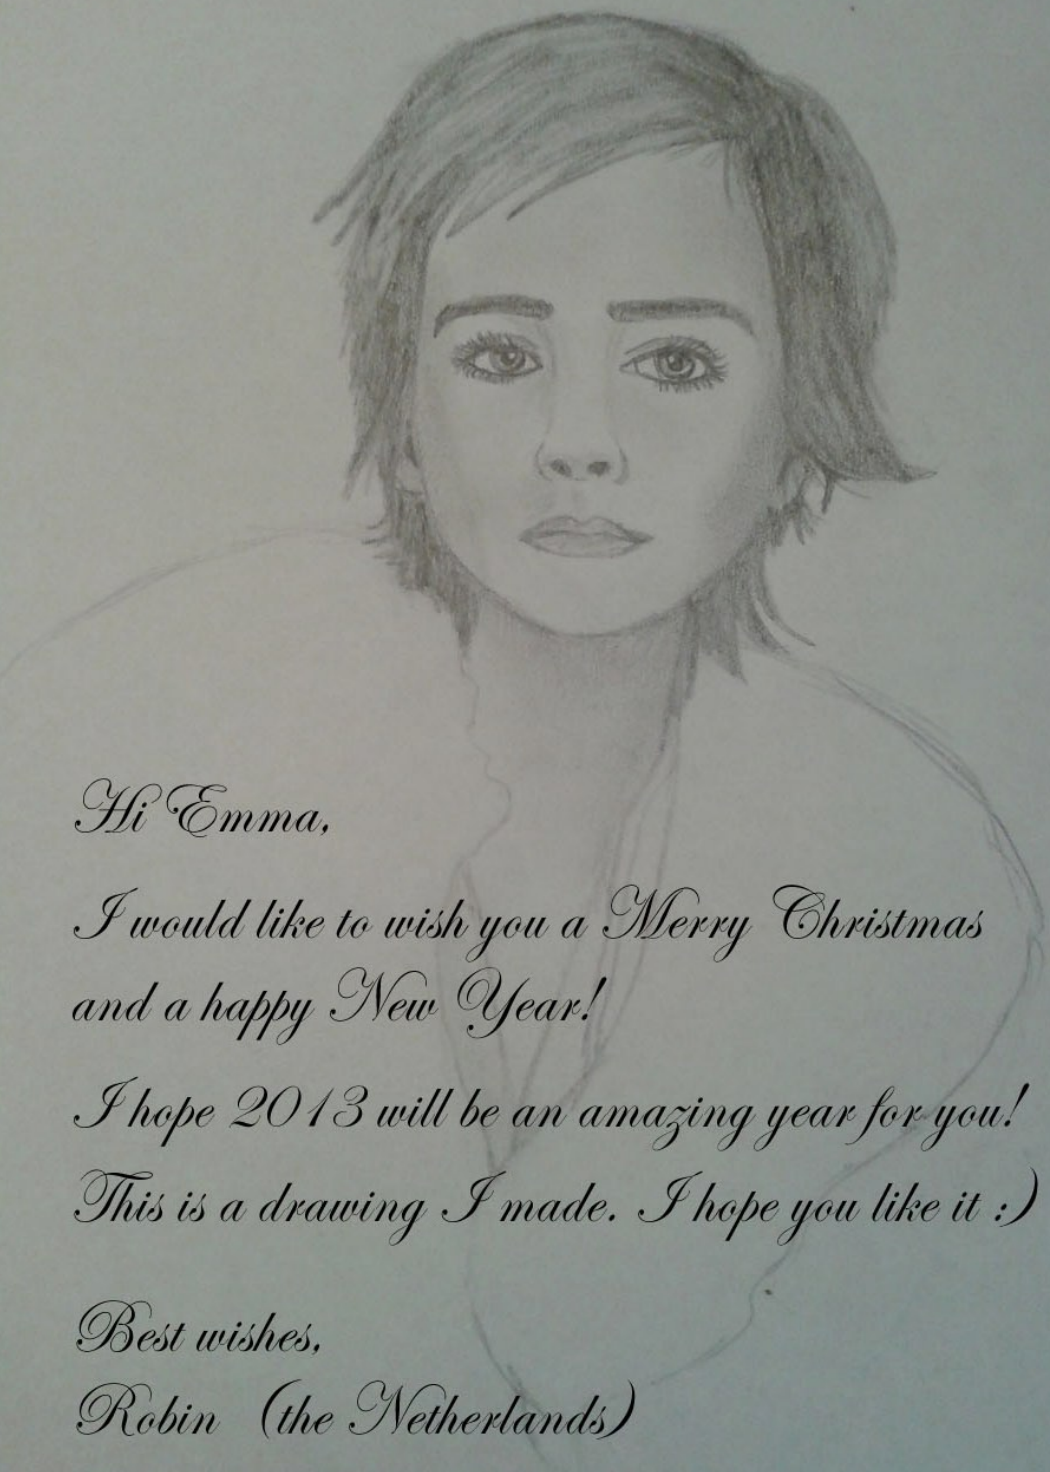 Hi Emma,
I would like to wish you a Merry Christmas
and a happy New Year!
I hope 2013 will be an amazing year for you!
This is a drawing I made. I hope you like it :)
Best wishes,
Robin (the Netherlands)